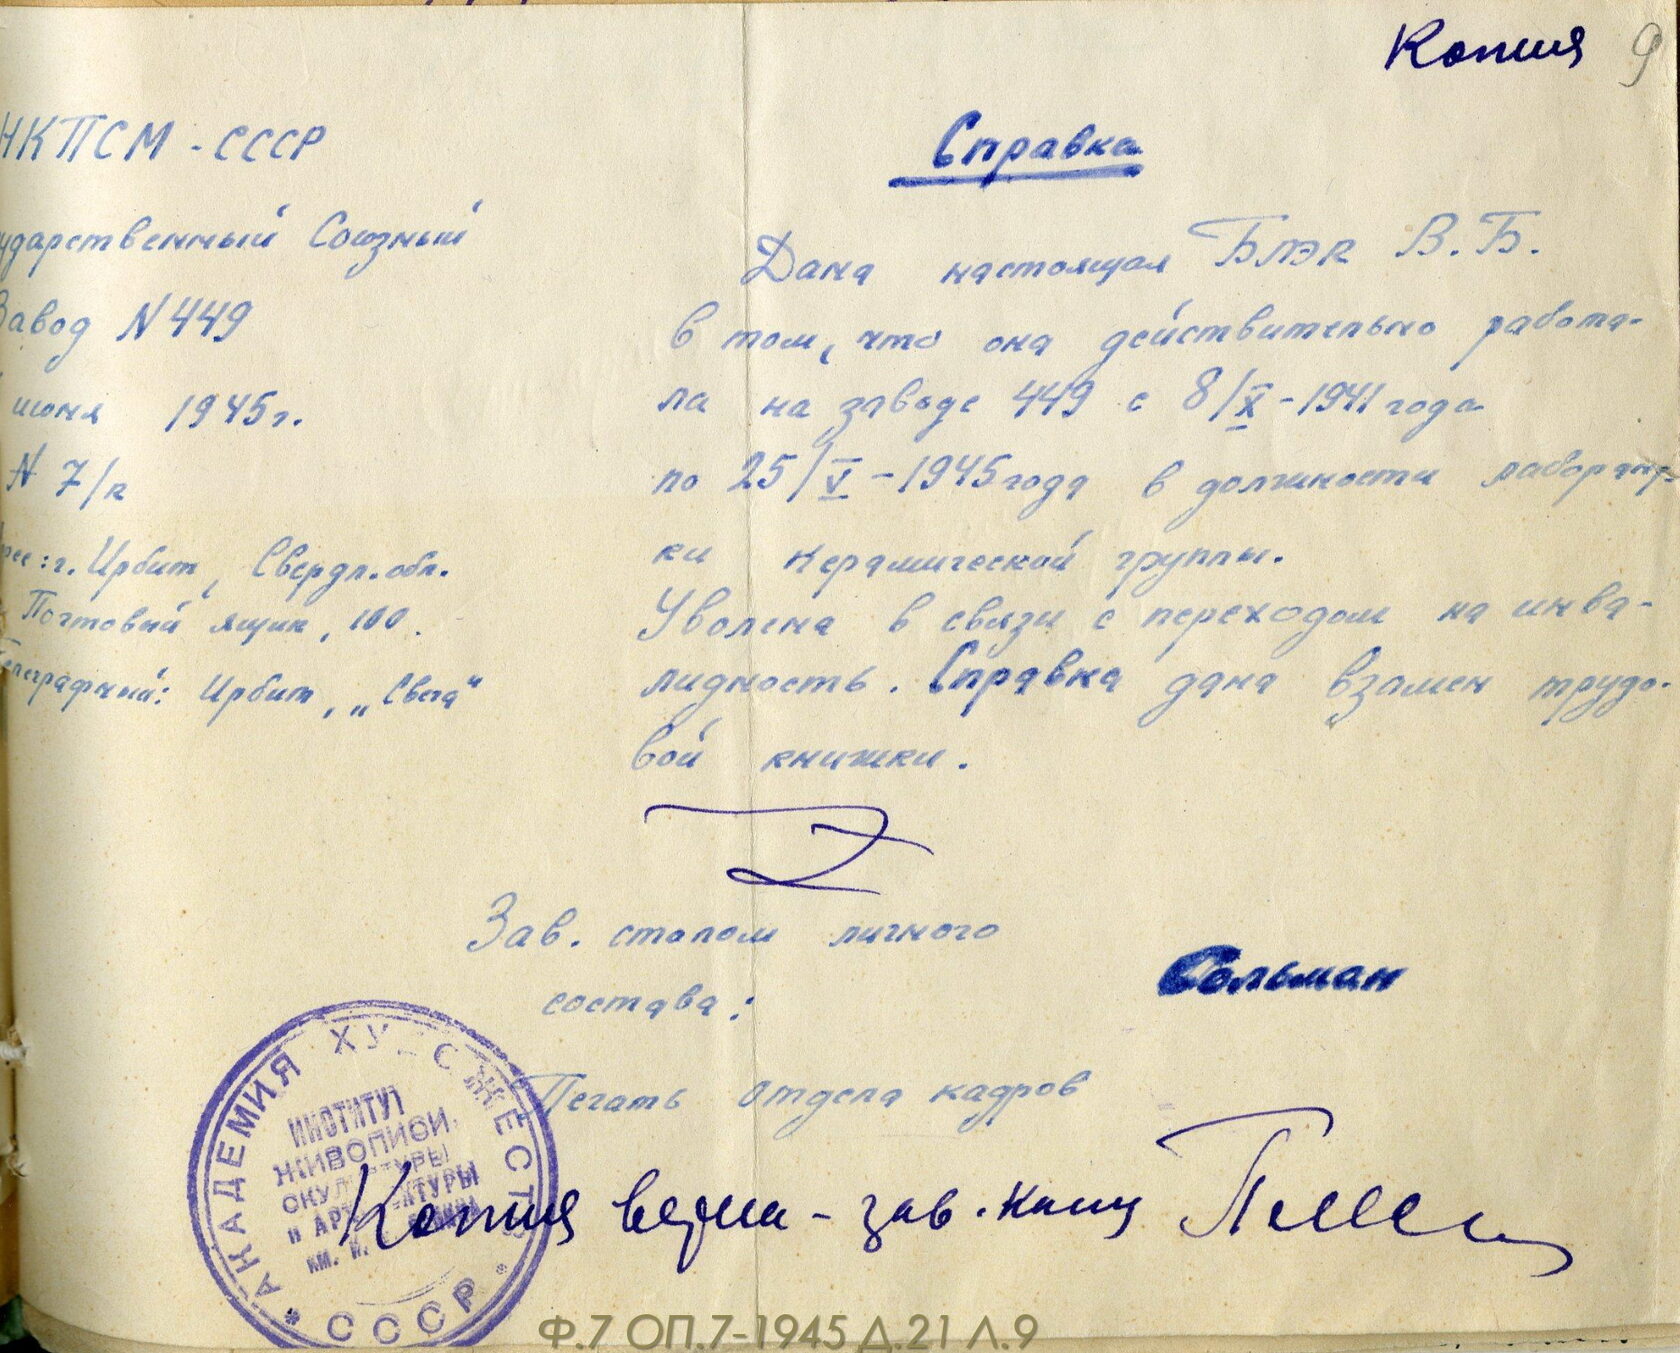 Копия 9
НКПСМ - СССР
ударственный Союзный
Завод N 449
июня 1945г.
N 7/к
рес: г. Ирбит, Свердл. обл.
Почтовый ящик, 100.
Телеграфный: Ирбит, „Свега"
Справка
Дана настоящая Блэк В.Б.
в том, что она действительно работа-
ла на заводе 449 с 8/X - 1941 года
по 25/V - 1945 года в должности лаборант-
ки керамической группы.
Уволена в связи с переходом на инва-
лидность. Справка дана взамен трудо-
вой книжки.
Зав. столом личного
состава: Сольман
Печать отдела кадров
Копия верна - зав. канц
АКАДЕМИЯ ХУ СЖЕСТВ
СССР
ИНСТИТУТ
ЖИВОПИСИ,
СКУЛ ТУРЫ
И АР ЕКТУРЫ
ИМ. И.
Ф.7 ОП.7-1945 Д.21 Л.9